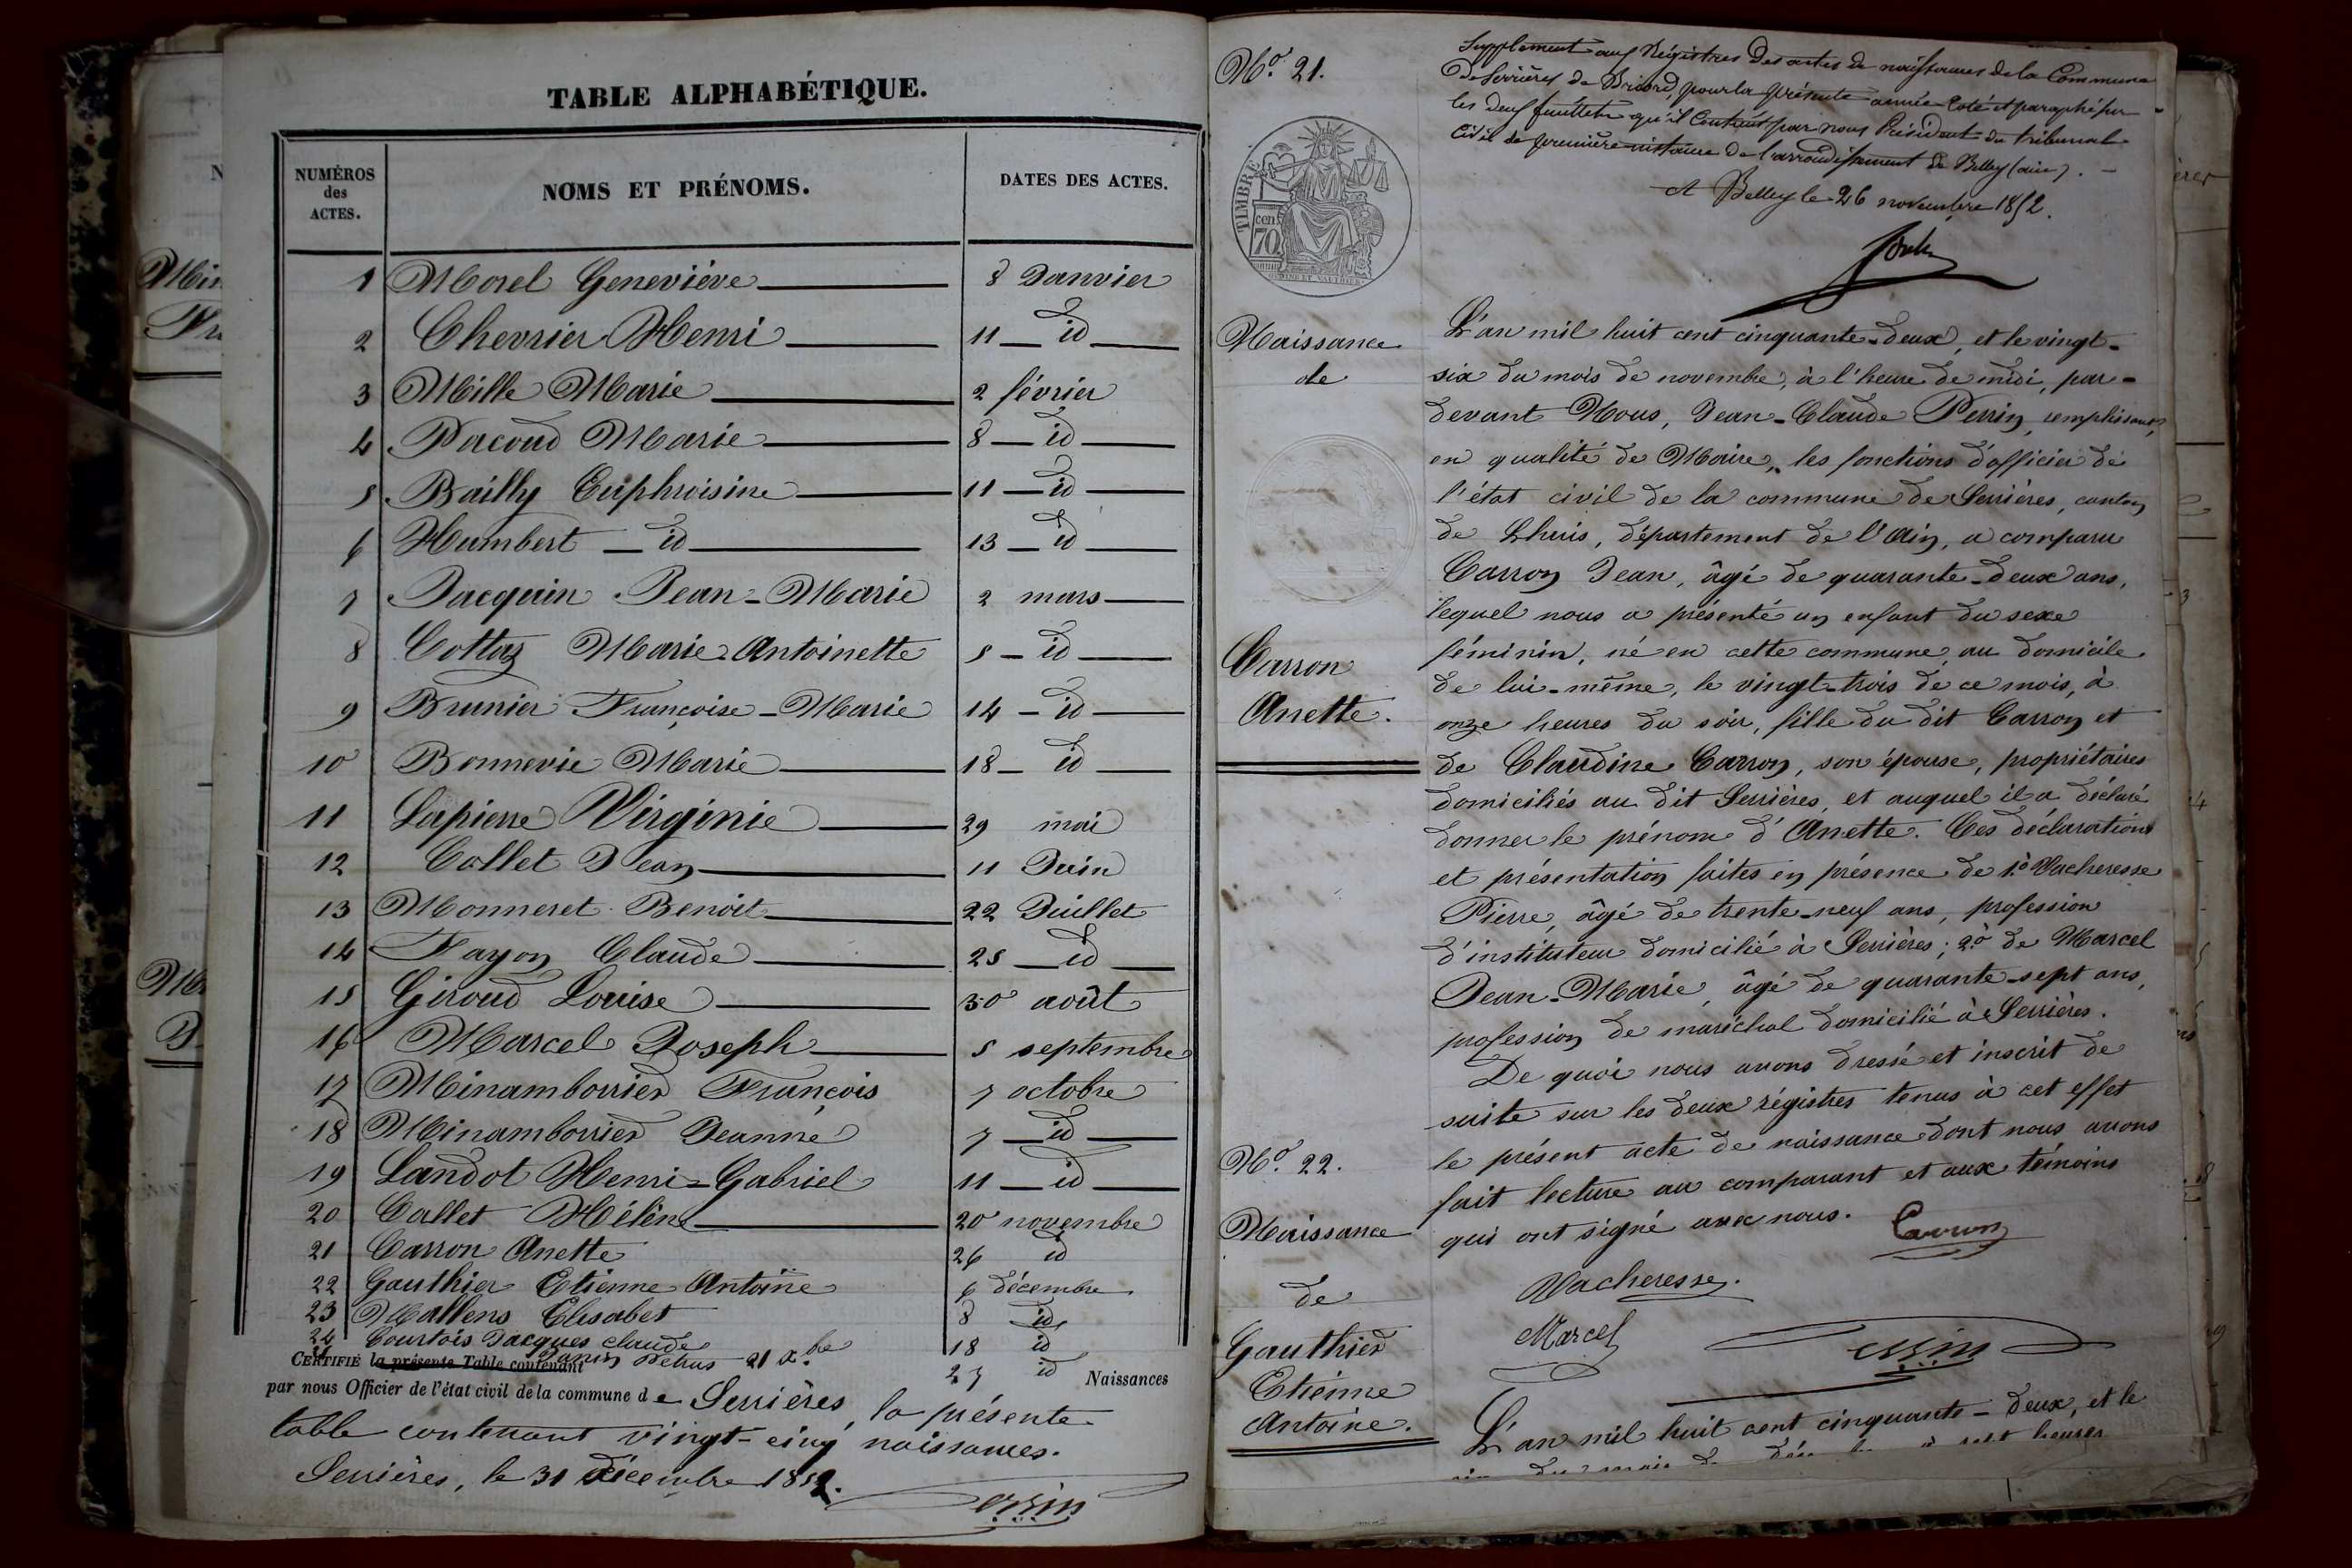 TABLE ALPHABÉTIQUE.
NUMÉROS des ACTES.
NOMS ET PRÉNOMS.
DATES DES ACTES.
1 Morel Geneviève 8 Janvier
2 Chevrier Henri 11 id
3 Mille Marie 2 février
4 Pacoud Marie 8 id
5 Bailly Euphroisine 11 id
6 Humbert id 13 id
7 Jacquin Jean-Marie 2 mars
8 Cottaz Marie-Antoinette 5 id
9 Brunier Françoise-Marie 14 id
10 Bonnevie Marie 18 id
11 Lapierre Virginie 29 mai
12 Collet Jean 11 Juin
13 Monneret Benoit 22 Juillet
14 Fayon Claude 25 id
15 Giroud Louise 30 août
16 Marcel Joseph 5 septembre
17 Minamborrier François 7 octobre
18 Minamborrier Jeanne 7 id
19 Landot Henri-Gabriel 11 id
20 Callet Hélène 20 novembre
21 Carron Anette 26 id
22 Gauthier Etienne Antoine 6 décembre
23 Mallens Elisabet 8 id
24 Courtois Jacques claude 18 id
21 xbre 27 id
CERTIFIÉ la présente Table contenant Naissances
par nous Officier de l'état civil de la commune de Serrières, la présente
table contenant vingt-cinq naissances.
Serrières, le 31 Décembre 1852.
Perrin
No. 21.
Supplément aux Régistres des actes de naissances de la Commune
de Serrières de Briord, pour la présente année Coté et paraphé sur
les deux feuillets qu'il Contient par nous Président du tribunal
Civil de première instance de l'arrondissement de Belley (ain).
A Belley le 26 novembre 1852.
TIMBRE
cen 70
Naissance
de
Carron
Anette.
L'an mil huit cent cinquante-deux, et le vingt-
six du mois de novembre, à l'heure de midi, par-
devant Nous, Jean-Claude Perrin, remplissant,
en qualité de Maire, les fonctions d'officier de
l'état civil de la commune de Serrières, canton
de Lhuis, département de l'Ain, a comparu
Carron Jean, âgé de quarante-deux ans,
lequel nous a présenté un enfant du sexe
féminin, né en cette commune, au domicile
de lui-même, le vingt-trois de ce mois, à
onze heures du soir, fille du dit Carron et
de Claudine Carron, son épouse, propriétaires
domiciliés au dit Serrières, et auquel il a déclaré
donner le prénom d'Anette. Ces déclarations
et présentation faites en présence de 1o Vacheresse
Pierre, âgé de trente-neuf ans, profession
d'instituteur domicilié à Serrières; 2o de Marcel
Jean-Marie, âgé de quarante-sept ans,
profession de maréchal domicilié à Serrières.
De quoi nous avons dressé et inscrit de
suite sur les deux régistres tenus à cet effet
le présent acte de naissance dont nous avons
fait lecture au comparant et aux témoins
qui ont signé avec nous.
Carron
Vacheresse.
Marcel
Perrin
No. 22.
Naissance
de
Gauthier
Etienne
Antoine.
L'an mil huit cent cinquante-deux, et le